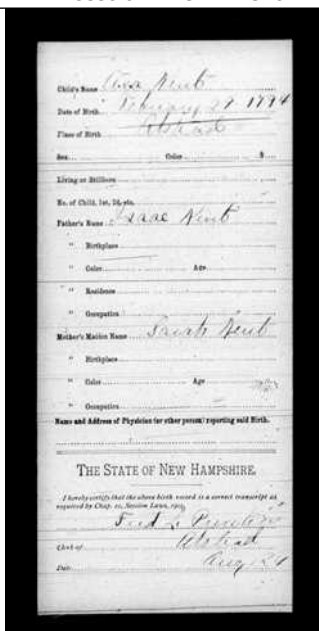 Child's Name Asa Kent
Date of Birth February 29 1794
Place of Birth Alstead
Sex Color $
Living or Stillborn
No. of Child, 1st, 2d, etc.
Father's Name Isaac Kent
" Birthplace
" Color Age
" Residence
" Occupation
Mother's Maiden Name Kent
" Birthplace
" Color Age
" Occupation
Name and Address of Physician (or other person) reporting said Birth.
THE STATE OF NEW HAMPSHIRE.
I hereby certify that the above birth record is a correct transcript as
required by Chap. 21, Session Laws, 1905
Fred L.
Clerk of Alstead
Date Aug 24